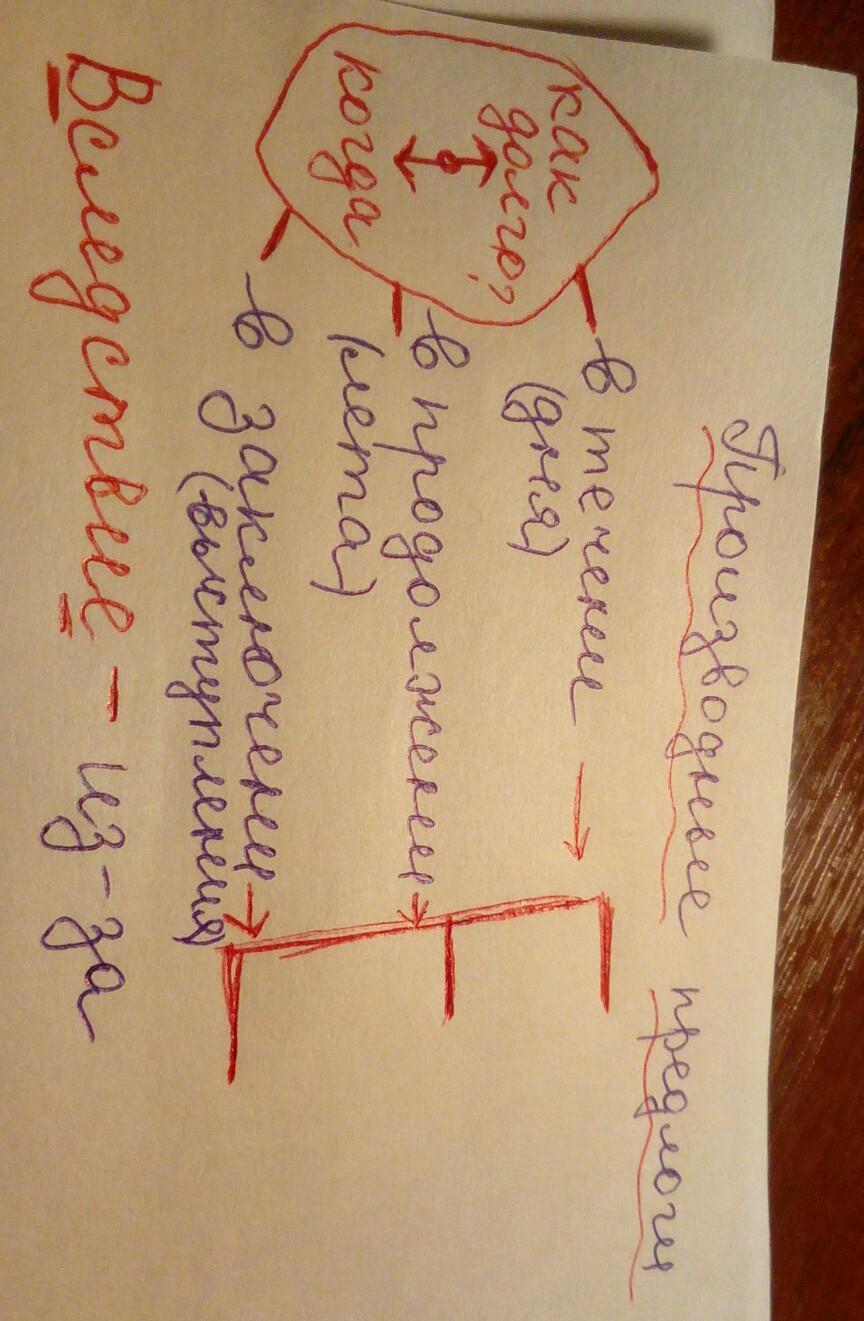 Производные предлоги
как
долго?
когда
в течени → Е
(дня)
в продолжени →
(лета)
в заключени →
(выступления)
Вследствие – из-за